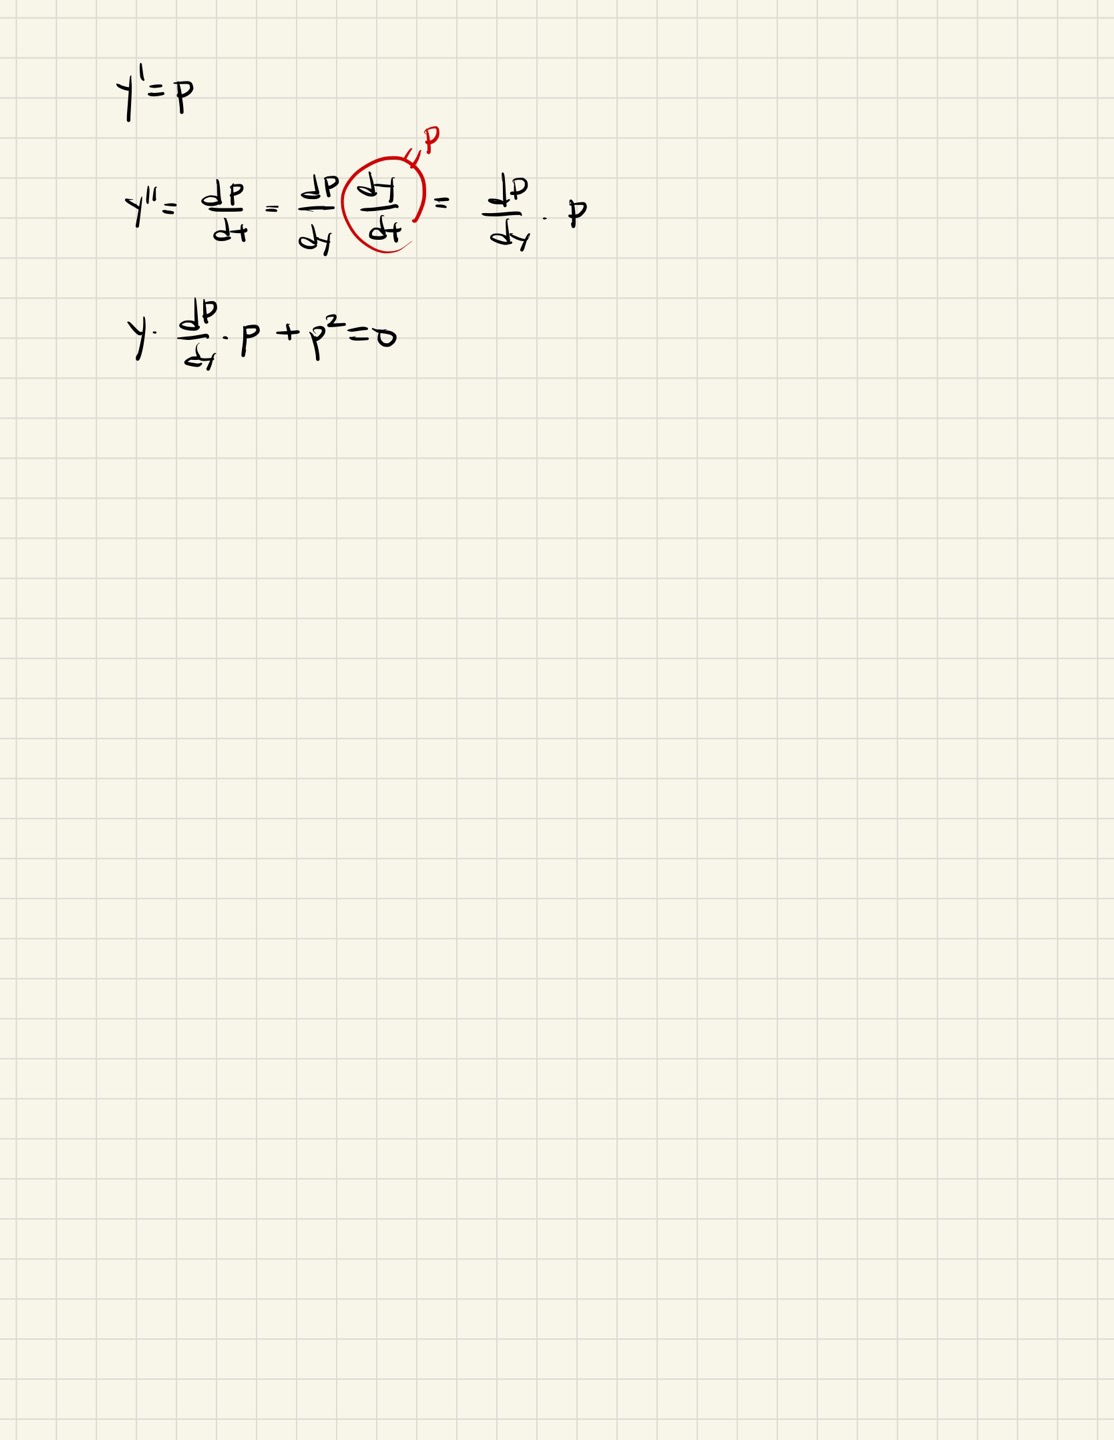 y' = p
y'' = dp/dt = dp/dy dy/dt = dp/dy · p
" p
y · dp/dy · p + p² = 0